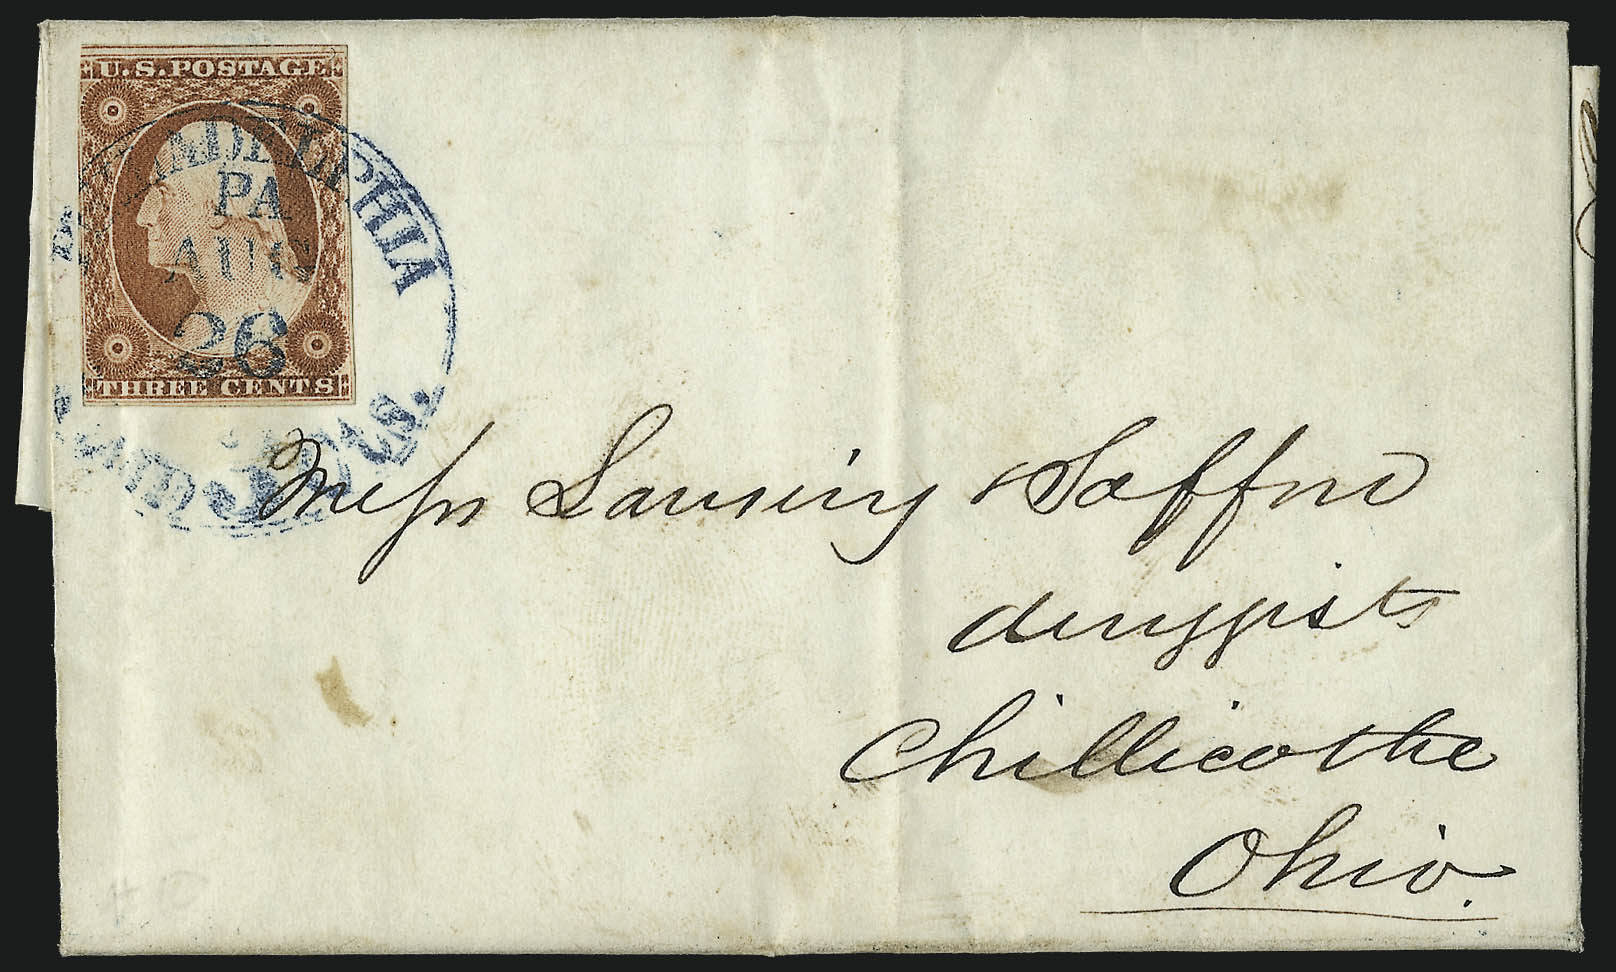 U.S. POSTAGE
PHILADELPHIA
PA
AUG
26
THREE CENTS
3 cts.
Messrs Lansing & Safford
druggists
Chillicothe
Ohio.